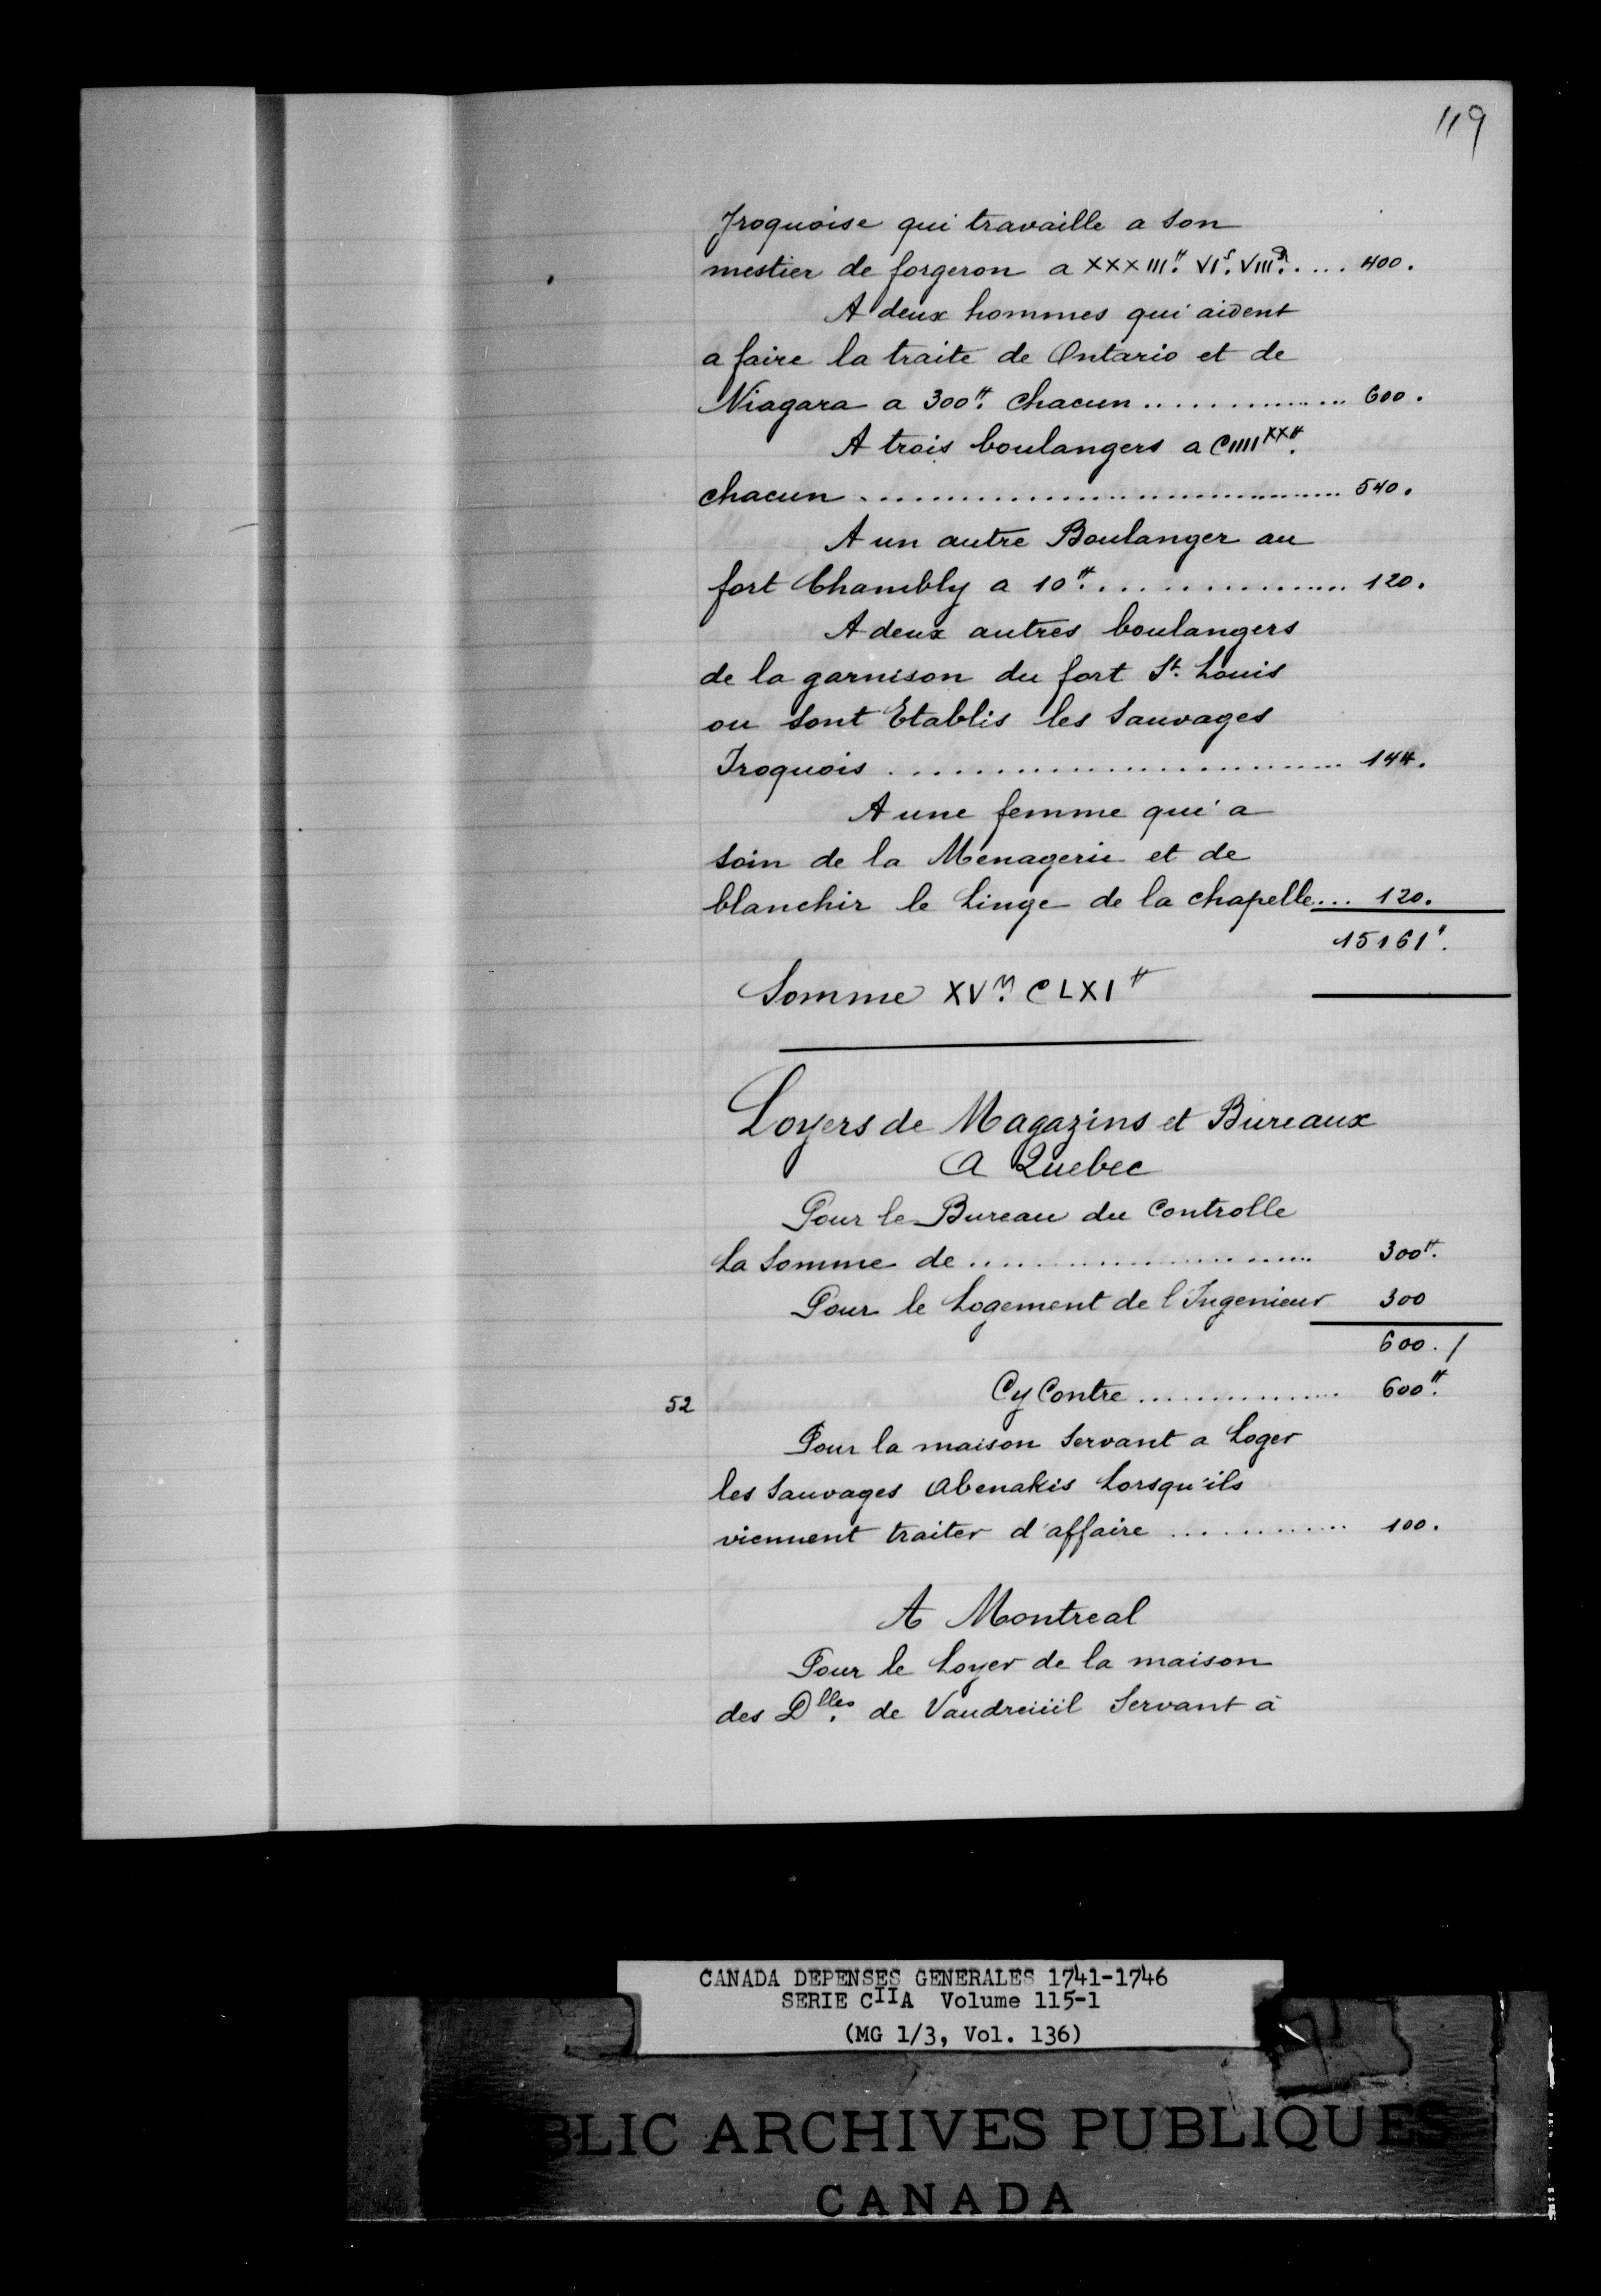 119
Iroquoise qui travaille a son
mestier de forgeron a XXXIII#. VIs. VIIId. .... 400.
A deux hommes qui aident
a faire la traite de Ontario et de
Niagara a 300#. chacun ............... 600.
A trois boulangers a CIIIIXX#.
chacun ............... 540.
A un autre Boulanger au
fort Chambly a 10#. ............... 120.
A deux autres boulangers
de la garnison du fort St. Louis
ou sont Etablis les Sauvages
Iroquois ............... 144.
A une femme qui a
soin de la Menagerie et de
blanchir le Linge de la chapelle ... 120.
15161#.
Somme XVM. CLXI#
Loyers de Magazins et Bureaux
A Quebec
Pour le Bureau du Controlle
La Somme de ............... 300#.
Pour le Logement de l'Ingenieur 300
600. /
52 Cy Contre ............... 600#.
Pour la maison Servant a Loger
les Sauvages Abenakis Lorsqu'ils
viennent traiter d'affaire ............... 100.
A Montreal
Pour le Loyer de la maison
des Dlles. de Vaudreüil Servant à
CANADA DEPENSES GENERALES 1741-1746
SERIE CIIA Volume 115-1
(MG 1/3, Vol. 136)
BLIC ARCHIVES PUBLIQUES
CANADA